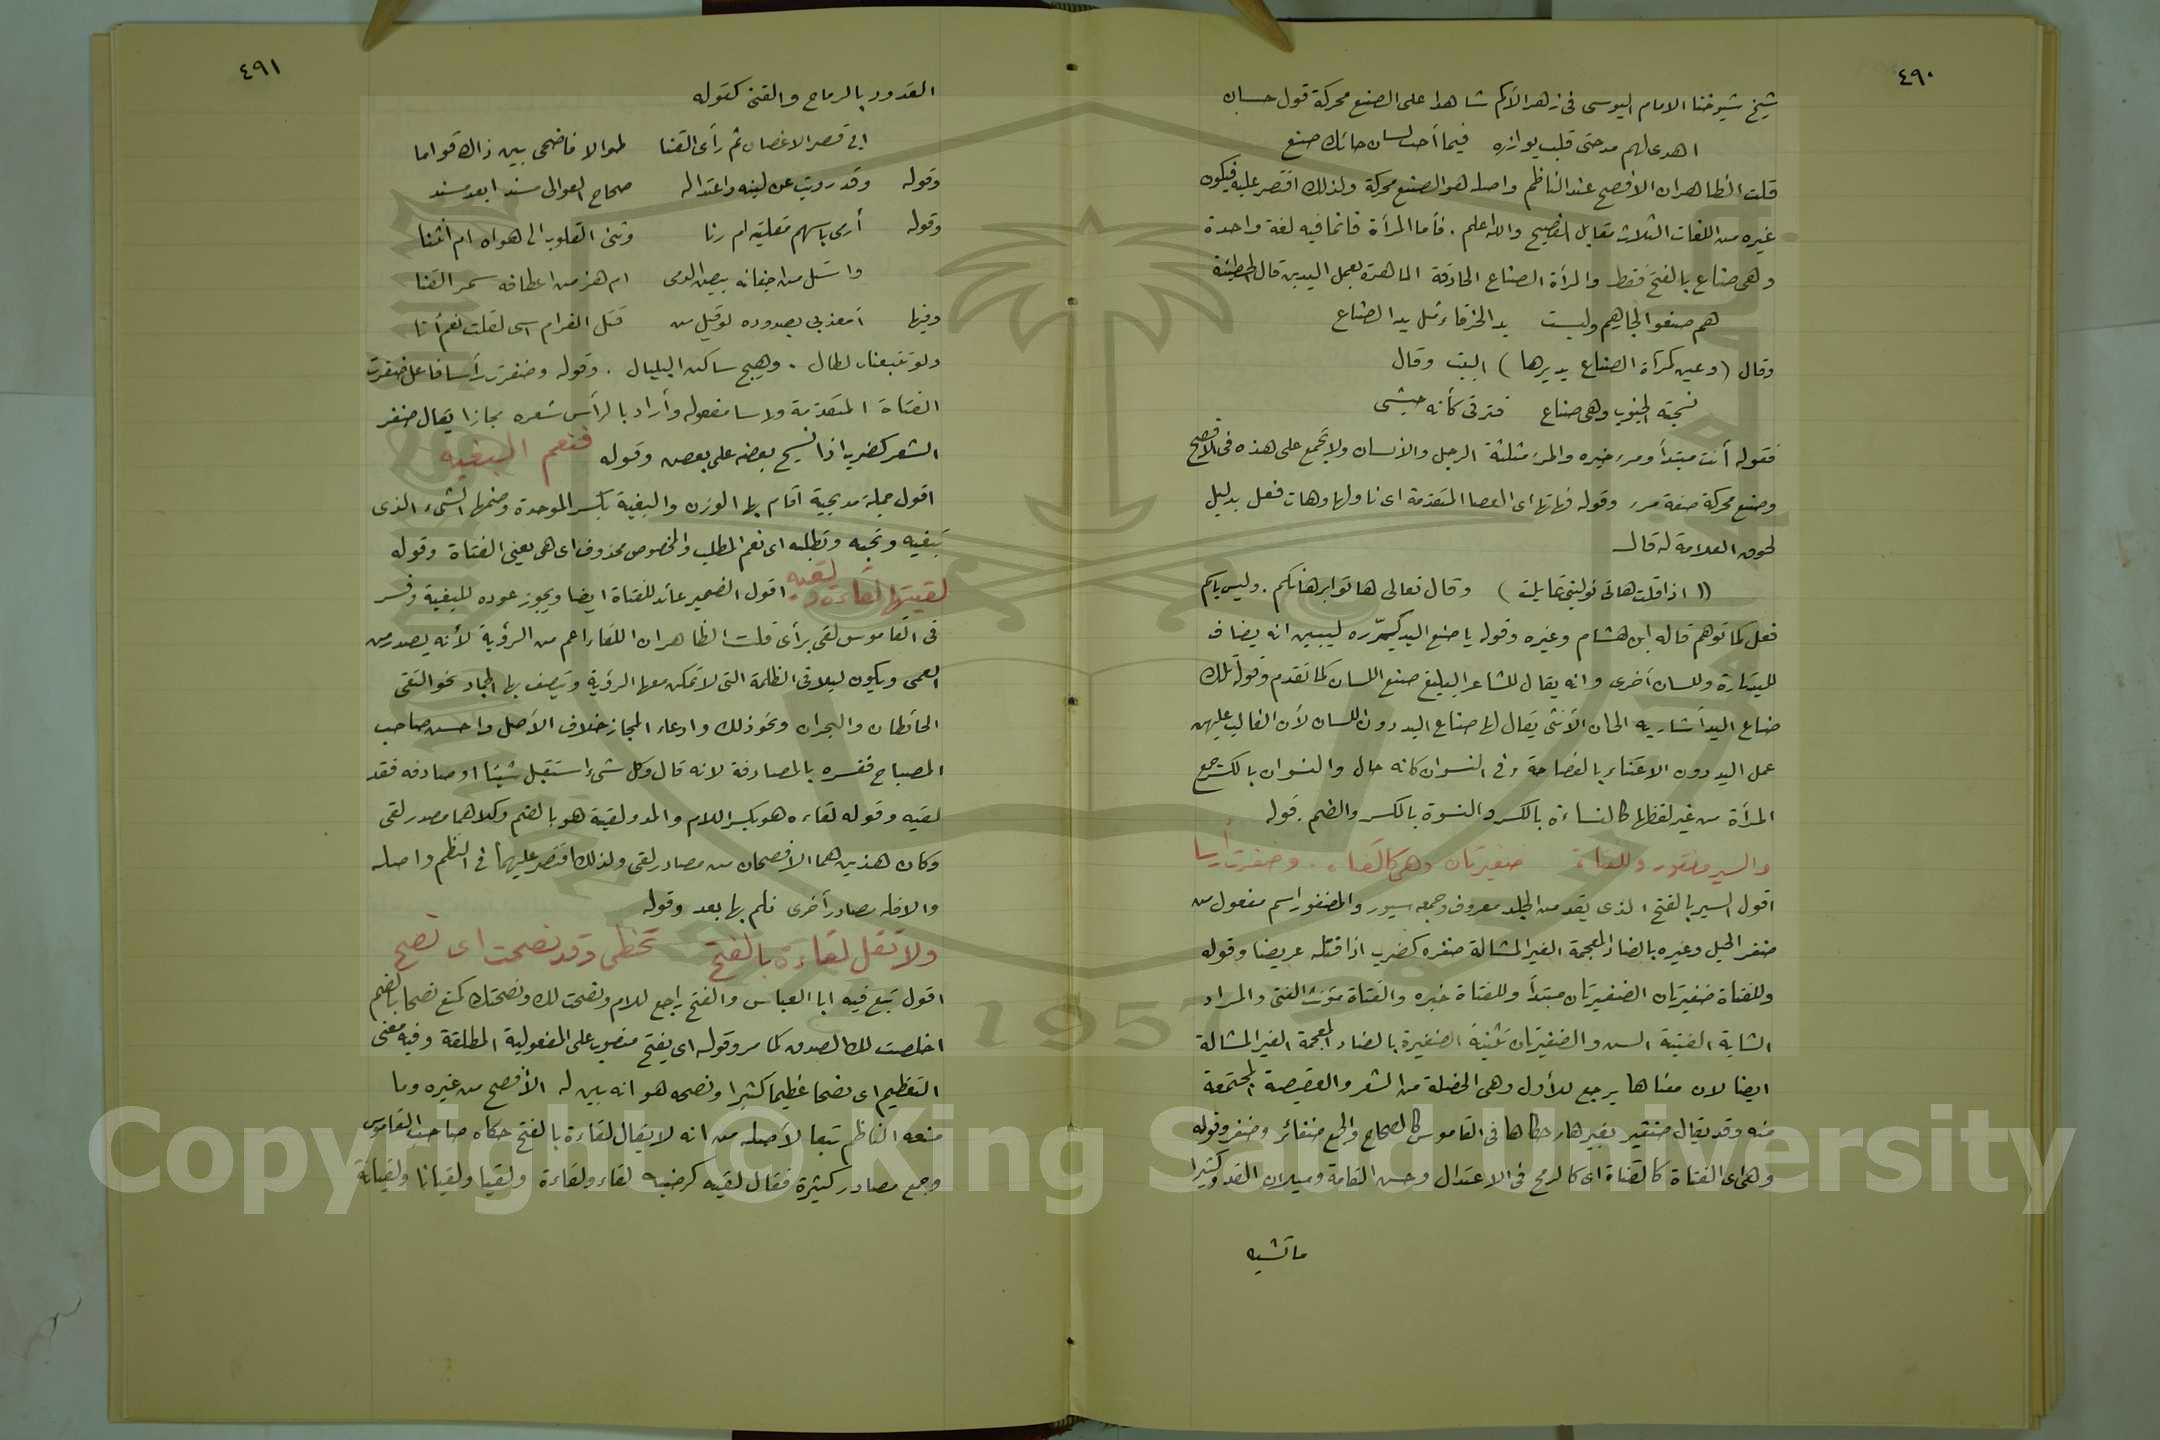 ٤٩٠
شيخ شيوخنا الامام اليوسى فى زهر الأكم شاهدا على الصنع محركة قول حسان
اهدى لهم مدحتى قلب يوازره فيما أحب لسان حائك صنع
قلت الظاهر ان الأفصح عند الناظم واصله هو الصنع محركة ولذلك اقتصر عليه فيكون
غيره من اللغات الثلاث مقابل الفصيح والله اعلم . فأما المرأة فانما فيه لغة واحدة
وهى صناع بالفتح فقط والمرأة الصناع الحاذقة الماهرة بعمل اليدين قال الحطيئة
هم صنعوا لجارهم وليست يد الخرقاء مثل يد الصناع
وقال (وعين كمرآة الصناع يديرها) البيت وقال
نسجته الجنوب وهى صناع فترقى كأنه حبشى
فقوله أنت مبتدأ ومرء خبره والمرء مثلثة الرجل والانسان ولا يجمع على هذه فى الأفصح
وصنع محركة صفة مرء وقوله فهاتها اى العصا المتقدمة اى ناولها وهات فعل بدليل
لحوق العلامة له قال
((اذا قلت هاتى نولينى تمايلت) وقال تعالى هاتوا برهانكم . وليس باسم
فعل كما توهم قاله ابن هشام وغيره وقوله يا صنع اليد كرره ليبين انه يضاف
لليد تارة وللسان أخرى وانه يقال للشاعر البليغ صنع اللسان كما تقدم وقوله تلك
صناع اليد أشار به الى ان الأنثى يقال لها صناع اليد دون اللسان لأن الغالب عليهن
عمل اليد دون الاعتناء بالفصاحة وفى النسوان كانه حال والنسوان بالكسر جمع
المرأة من غير لفظها كالنساءة بالكسر والنسوة بالكسر والضم . قوله
والسير مضفور وللفتاة ضفيرتان وهى كالقناة . وضفرت رأسا
اقول السير بالفتح الذى يقد من الجلد معروف وجمعه سيور والمضفور اسم مفعول من
ضفر الحبل وغيره بالضاد المعجمة الغير المشالة ضفره كضرب اذا فتله عريضا وقوله
وللفتاة ضفيرتان الضفيرتان مبتدأ وللفتاة خبره والفتاة مؤنث الفتى والمراد
الشابة الفتية السن والضفيرتان تثنية الضفيرة بالضاد المعجمة الغير المشالة
ايضا لان معناها يرجع للأول وهى الخصلة من الشعر والعقيصة المجتمعة
منه وقد يقال ضفير بغير هاء حكاها فى القاموس كالصحاح والجمع ضفائر وضفر وقوله
وهى اى الفتاة كالقناة اى كالرمح فى الاعتدال وحسن القامة وميلان القد وكثيرا
ما تشبه
٤٩١
القدود بالرماح والقنى كقوله
الى قصر الاغصان ثم رأى القنا طوالا فاضحى بين ذاك قواما
وقوله وقد رويت عن لينه واعتداله صحاح العوالى مسندا بعد مسند
وقوله أرمى باسهم مقلتيه ام رنا وثنى القلوب الى هواه ام انثنا
واستل من اجفانه بيض الدمى ام هز من اعطافه سمر القنا
وفيها أمعذبى بصدوده لو قيل من قتل الغرام اسى لقلت نعم أنا
ولو تتبعناه لطال . وهيج ساكن البلبال . وقوله وضفرت رأسا فاعل ضفرت
الفتاة المتقدمة ورأسا مفعوله وأراد بالرأس شعره مجازا يقال ضفر
الشعر كضرب اذا نسج بعضه على بعض وقوله فنعم البغيه
اقول جملة مدحية اقام بها الوزن والبغية بكسر الموحدة وضمها الشىء الذى
تبغيه وتحبه وتطلبه اى نعم المطلب والمخصوص محذوف اى هى يعنى الفتاة وقوله
لقيتها لقاءة ولقيه اقول الضمير عائد للفتاة ايضا ويجوز عوده للبغية وفسر
فى القاموس لقى برأى قلت الظاهر ان اللقاء اعم من الرؤية لأنه يصدر من
العمى ويكون ليلا فى الظلمة التى لا تمكن معها الرؤية ويتصف بها الجماد نحو التقى
الحائطان والبحران ونحو ذلك وادعاء المجاز خلاف الأصل واحسن صاحب
المصباح ففسره بالمصادفة لانه قال وكل شىء استقبل شيئا او صادفه فقد
لقيه وقوله لقاءه هو بكسر اللام والمد ولقية هو بالضم وكلاهما مصدر لقى
وكان هذين هما الافصحان من مصادر لقى ولذلك اقتصر عليهما فى النظم واصله
والا فله مصادر أخرى نلم بها بعد وقوله
ولا تقل لقاءة بالفتح تخطى وقد نصحت اى نصح
اقول تبع فيه ابا العباس والفتح راجع للام ونصحت لك ونصحتك كمنع نصحا بالضم
اخلصت لك الصدق كما مر وقوله اى بفتح منصوب على المفعولية المطلقة وفيه معنى
التعظيم اى نصحا عظيما كثيرا ونصحه هو انه بين له الأفصح من غيره وما
منعه الناظم تبعا لأصله من انه لا يقال لقاءة بالفتح حكاه صاحب القاموس
وجمع مصادر كثيرة فقال لقيه كرضيه لقاء ولقاءة ولقيا ولقيانا ولقيانة
Copyright © King Saud University
1957